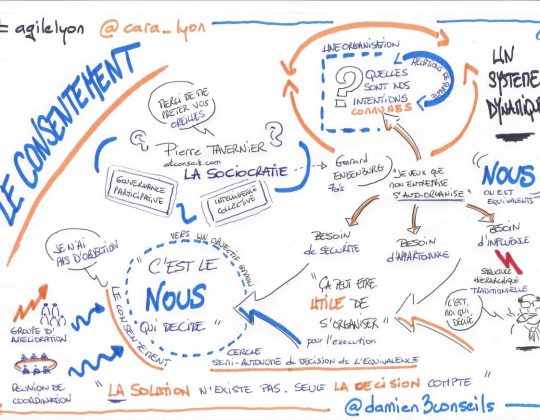 # agilelyon @cara_lyon
LE CONSENTEMENT
MERCI DE ME
PRÊTER VOS
OREILLES
Pierre TAVERNIER
atconseil.com
LA SOCIOCRATIE
GOUVERNANCE
PARTICIPATIVE
INTELLIGENCE
COLLECTIVE
UNE ORGANISATION
?
QUELLES
SONT NOS
INTENTIONS
COMMUNES
UN
SYSTEME
DYNAMIQUE
Gerard
ENDENBURG
70's
"JE VEUX QUE
MON ENTREPRISE
S'AUTO-ORGANISE"
"NOUS
ON EST
EQUIVALENTS
BESOIN
de SECURITE
BESOIN
D'APPARTENANCE
BESOIN
d'INFLUENCE
STRUCTURE
HIERARCHIQUE
TRADITIONNELLE
C'EST
MOI QUI
DECIDE
JE N'AI
PAS D'OBJECTION
VERS UN OBJECTIF COMMUN
"C'EST LE
NOUS
QUI DECIDE"
LE CONSENTEMENT
GROUPE D'
AMELIORATION
REUNION DE
COORDINATION
"ÇA PEUT ETRE
UTILE DE
S'ORGANISER"
pour l'execution
CERCLE
SEMI-AUTONOME de DECISION de L'EQUIVALENCE
"LA SOLUTION N'EXISTE PAS. SEULE LA DECISION COMPTE"
@damien3conseils